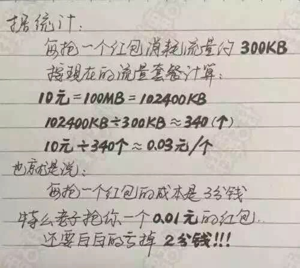 据统计:
每抢一个红包消耗流量约300KB
按现在的流量套餐计算:
10元=100MB=102400KB
102400KB÷300KB≈340(个)
10元÷340个≈0.03元/个
也就是说:
每抢一个红包的成本是3分钱
特么妻子抢你一个0.01元的红包..
还要白白的亏掉2分钱!!!